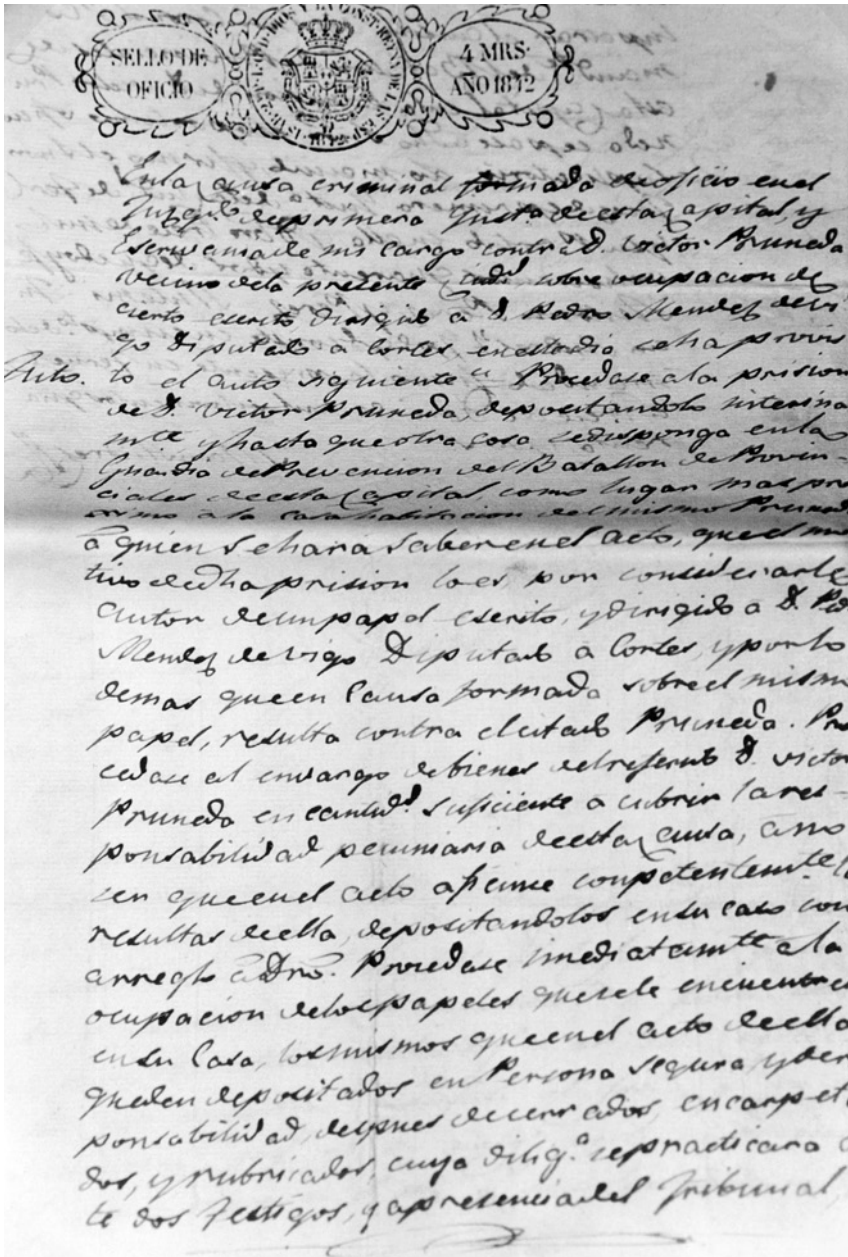 SELLO DE
OFICIO
4 MRS.
AÑO 1842
En la causa criminal formada de oficio en el
Juzg.º de primera Insta. de esta Capital, y
Escrivania de mi cargo contra D. Victor Pruneda
vecino de la presente Ciud.d sobre ocupacion de
cierto escrito dirigido a D. Pedro Mendez de Vi
go Diputado a Cortes en este dia se ha provis
Auto. to el auto siguiente " Procedase a la prision
de D. Victor Pruneda, depositandolo interina
mte y hasta que otra cosa se disponga en la
Guardia de Prevencion del Batallon de Provin-
ciales de esta Capital, como lugar mas pro
ximo a la casa habitacion del mismo Pruneda
a quien se hara saber en el acto, que el mo
tivo de dha prision lo es por considerarle
autor de un papel escrito, y dirigido a D. Ped
Mendez de Vigo Diputado a Cortes, y por lo
demas que en Causa formada sobre el mismo
papel, resulta contra el citado Pruneda. Pro
cedase al envargo de bienes del referido D. Victor
Pruneda en cantid.d suficiente a cubrir la res-
ponsabilidad pecuniaria de esta causa, a no
ser que en el acto afiance conpetentemte. l
resultas de ella, depositandolos en su caso con
arreglo a Dro. Procedase imediatamte a la
ocupacion de los papeles que se le encuentre
en su Casa, los mismos que en el acto de ella
queden depositados en Persona segura, y de r
ponsabilidad, despues de cerrados, encarpeta
dos, y rubricados, cuya dilig.a se practicara a
te dos Testigos, y a presencia del Tribunal,